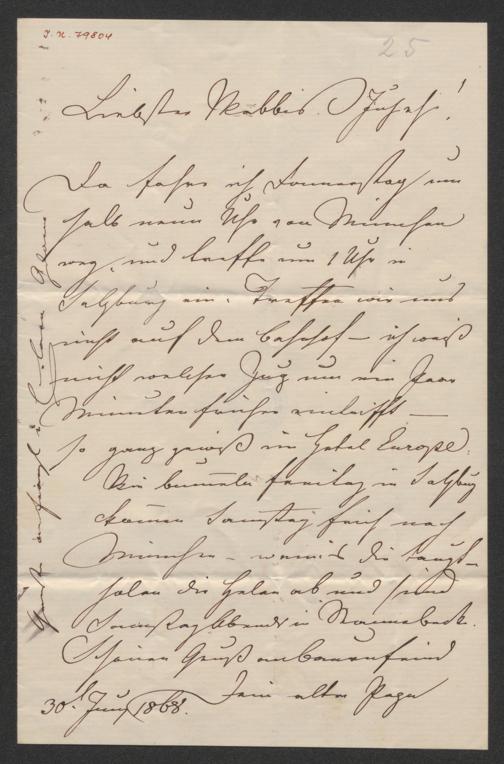 J. N. 79804
25
Liebster
Da fahre ich Donnerstag um
halb neun Uhr von München
weg, und treffe um 1 Uhr in
Salzburg ein. Treffen wir uns
nicht auf dem Bahnhof – ich weiß
nicht welcher Zug um ein Paar
Minuten früher eintrifft –
so ganz gewiß im Hotel Europe.
Wir bummeln Freitag in Salzburg
kommen Samstag früh nach
München – wenn's dir taugt –
holen die Helen ab und sind
Samstag Abends in
Schönen Gruß an Bauernfeind
Dein alter Papa
30. Juny 1868.